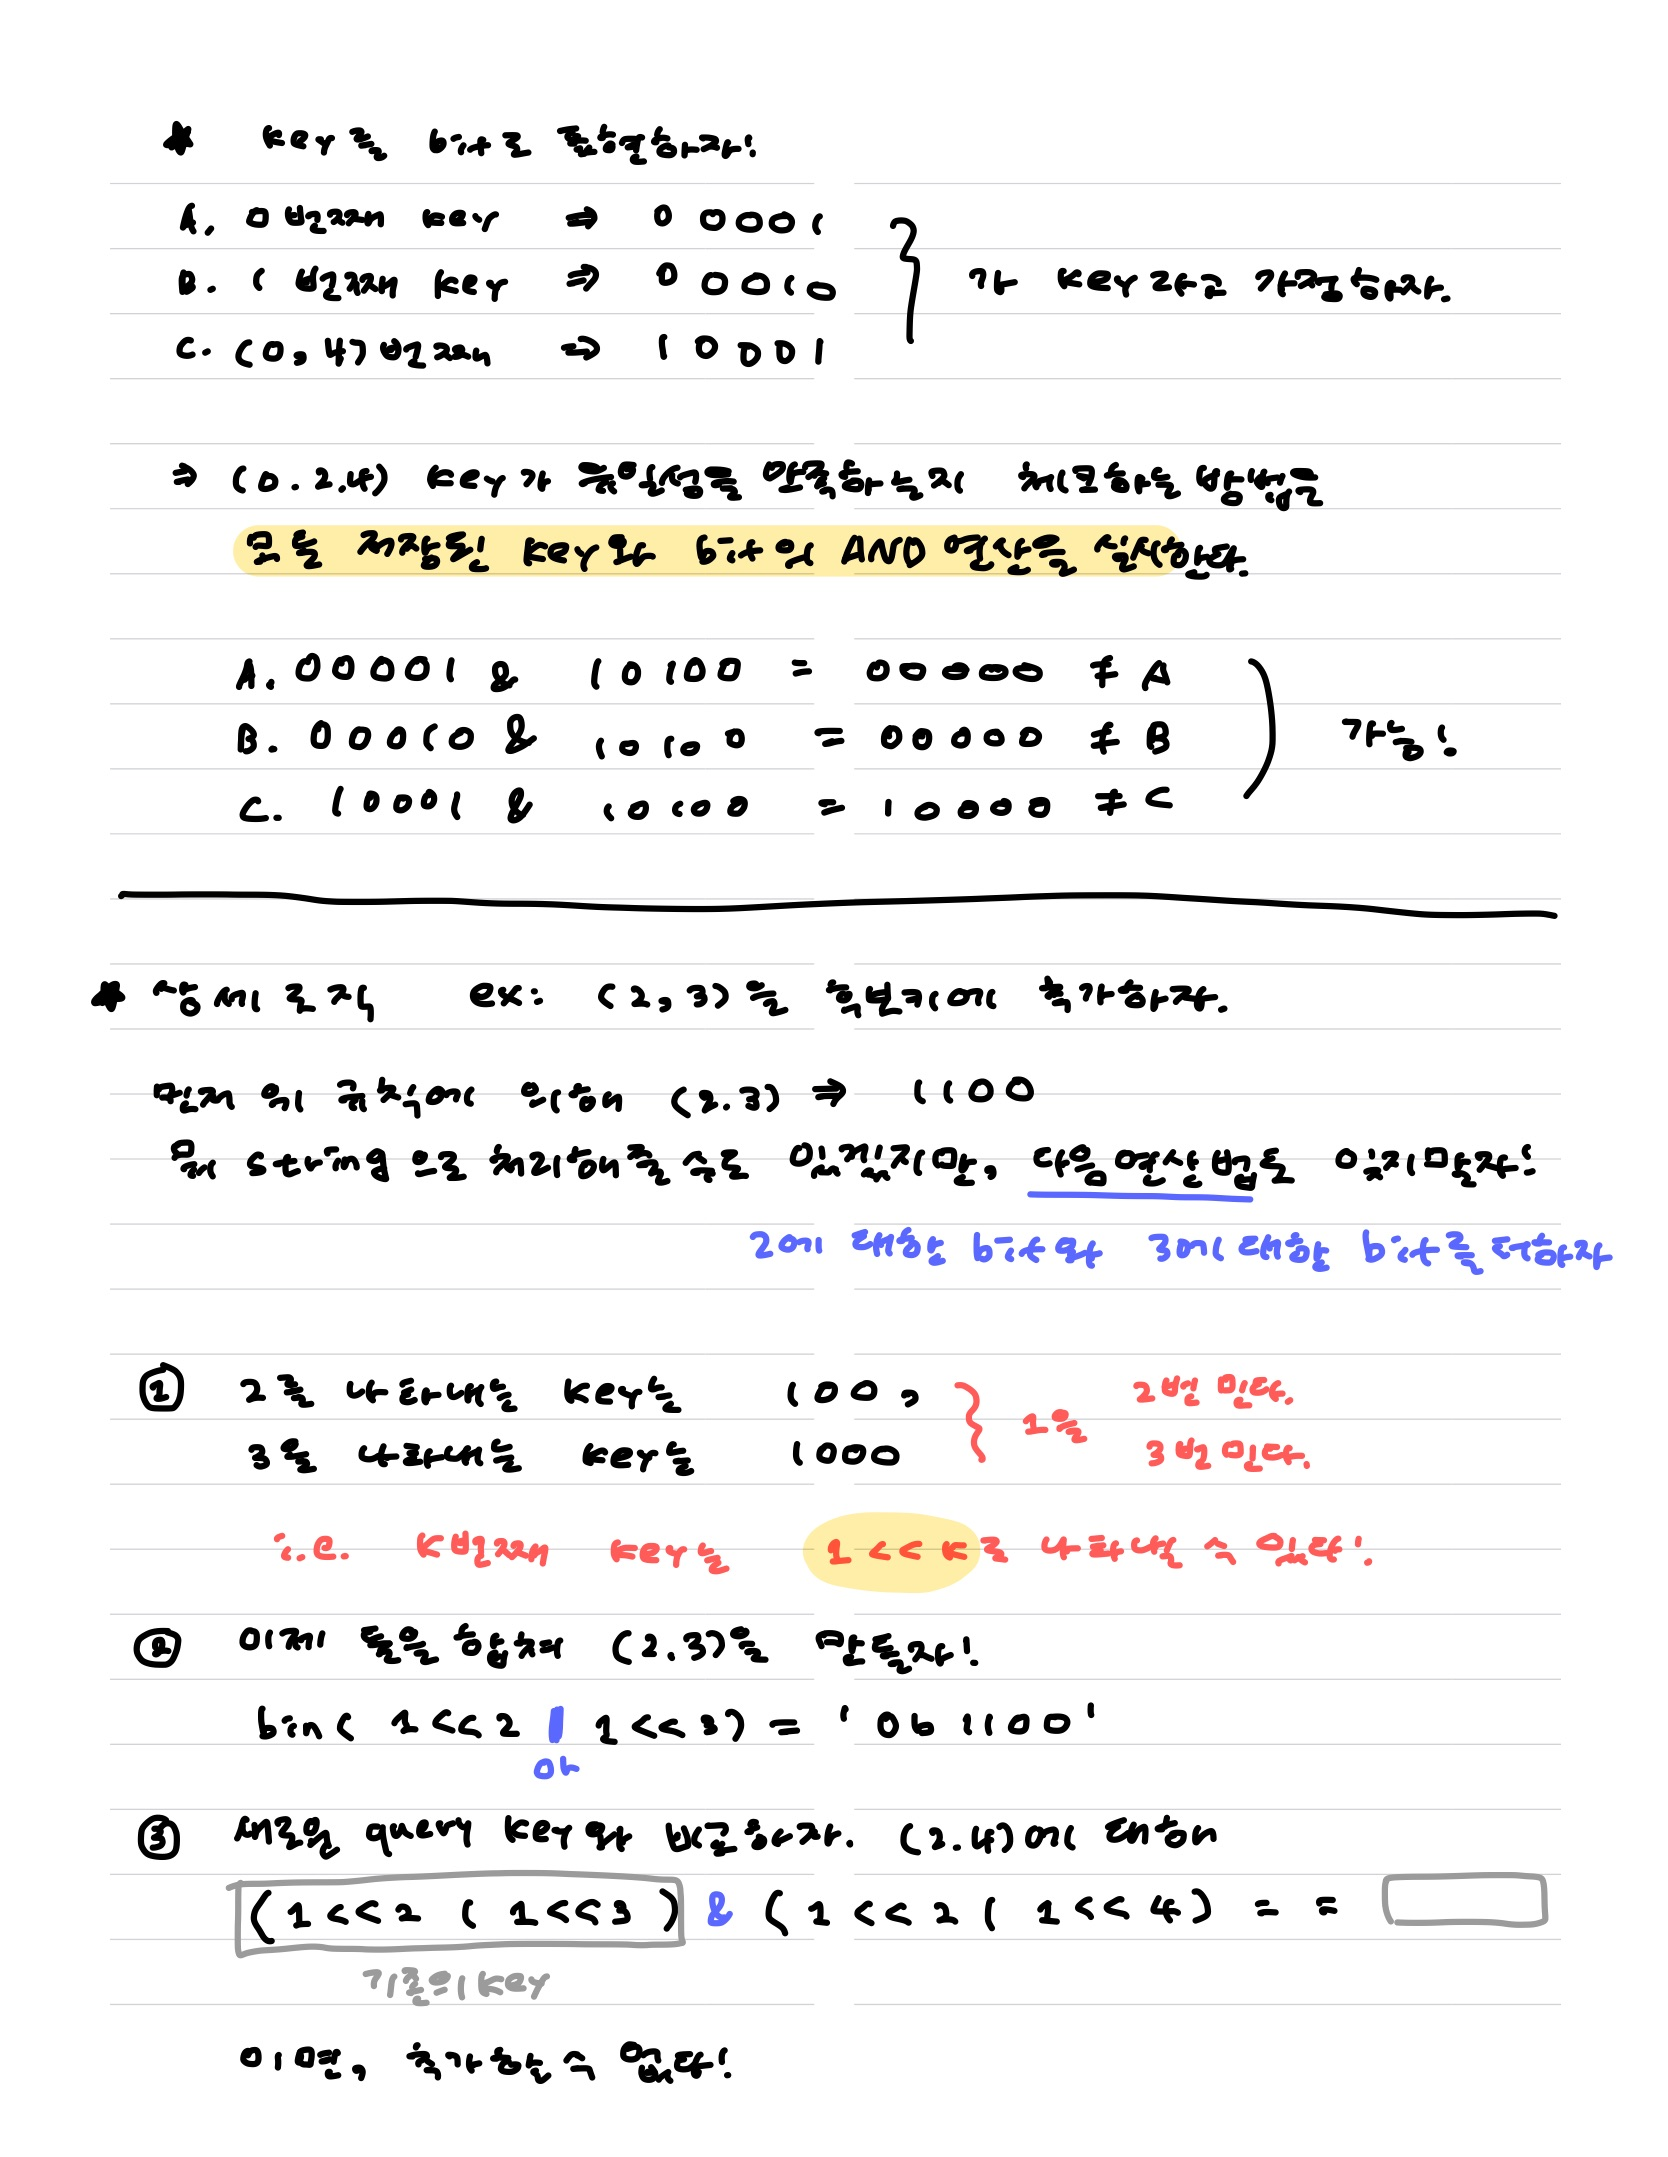 ★ key를 bit로 표현하자!
A. 0번째 key ⇒ 00001
B. 1번째 key ⇒ 00010
C. (0,4)번째 ⇒ 10001
} 가 key라고 가정하자.
⇒ (0.2.4) key가 유일성을 만족하는지 체크하는 방법은
모든 저장된 key와 bit의 AND 연산을 실시한다.
A. 00001 & 10100 = 00000 ≠ A
B. 00010 & 10100 = 00000 ≠ B
C. 10001 & 10100 = 10000 ≠ C
) 가능!
★ 상세 로직 ex: (2,3)을 후보키에 추가하자.
먼저 위 규칙에 의해 (2.3) ⇒ 1100
뭐 string으로 처리해줄 수도 있겠지만, 다음 연산법도 잊지말자!
2에 대한 bit와 3에 대한 bit를 더하자
① 2를 나타내는 key는 100,
3을 나타내는 key는 1000
} 1을 2번 민다.
3번 민다.
i.e. K번째 key는 1<<K로 나타낼 수 있다!
② 이제 둘을 합쳐 (2.3)을 만들자!
bin( 1<<2 | 1<<3) = '0b1100'
or
③ 새로운 query key와 비교하자. (2.4)에 대해
(1<<2 | 1<<3) & (1<<2 | 1<<4) ==
기존의 key
이면, 추가할 수 없다!